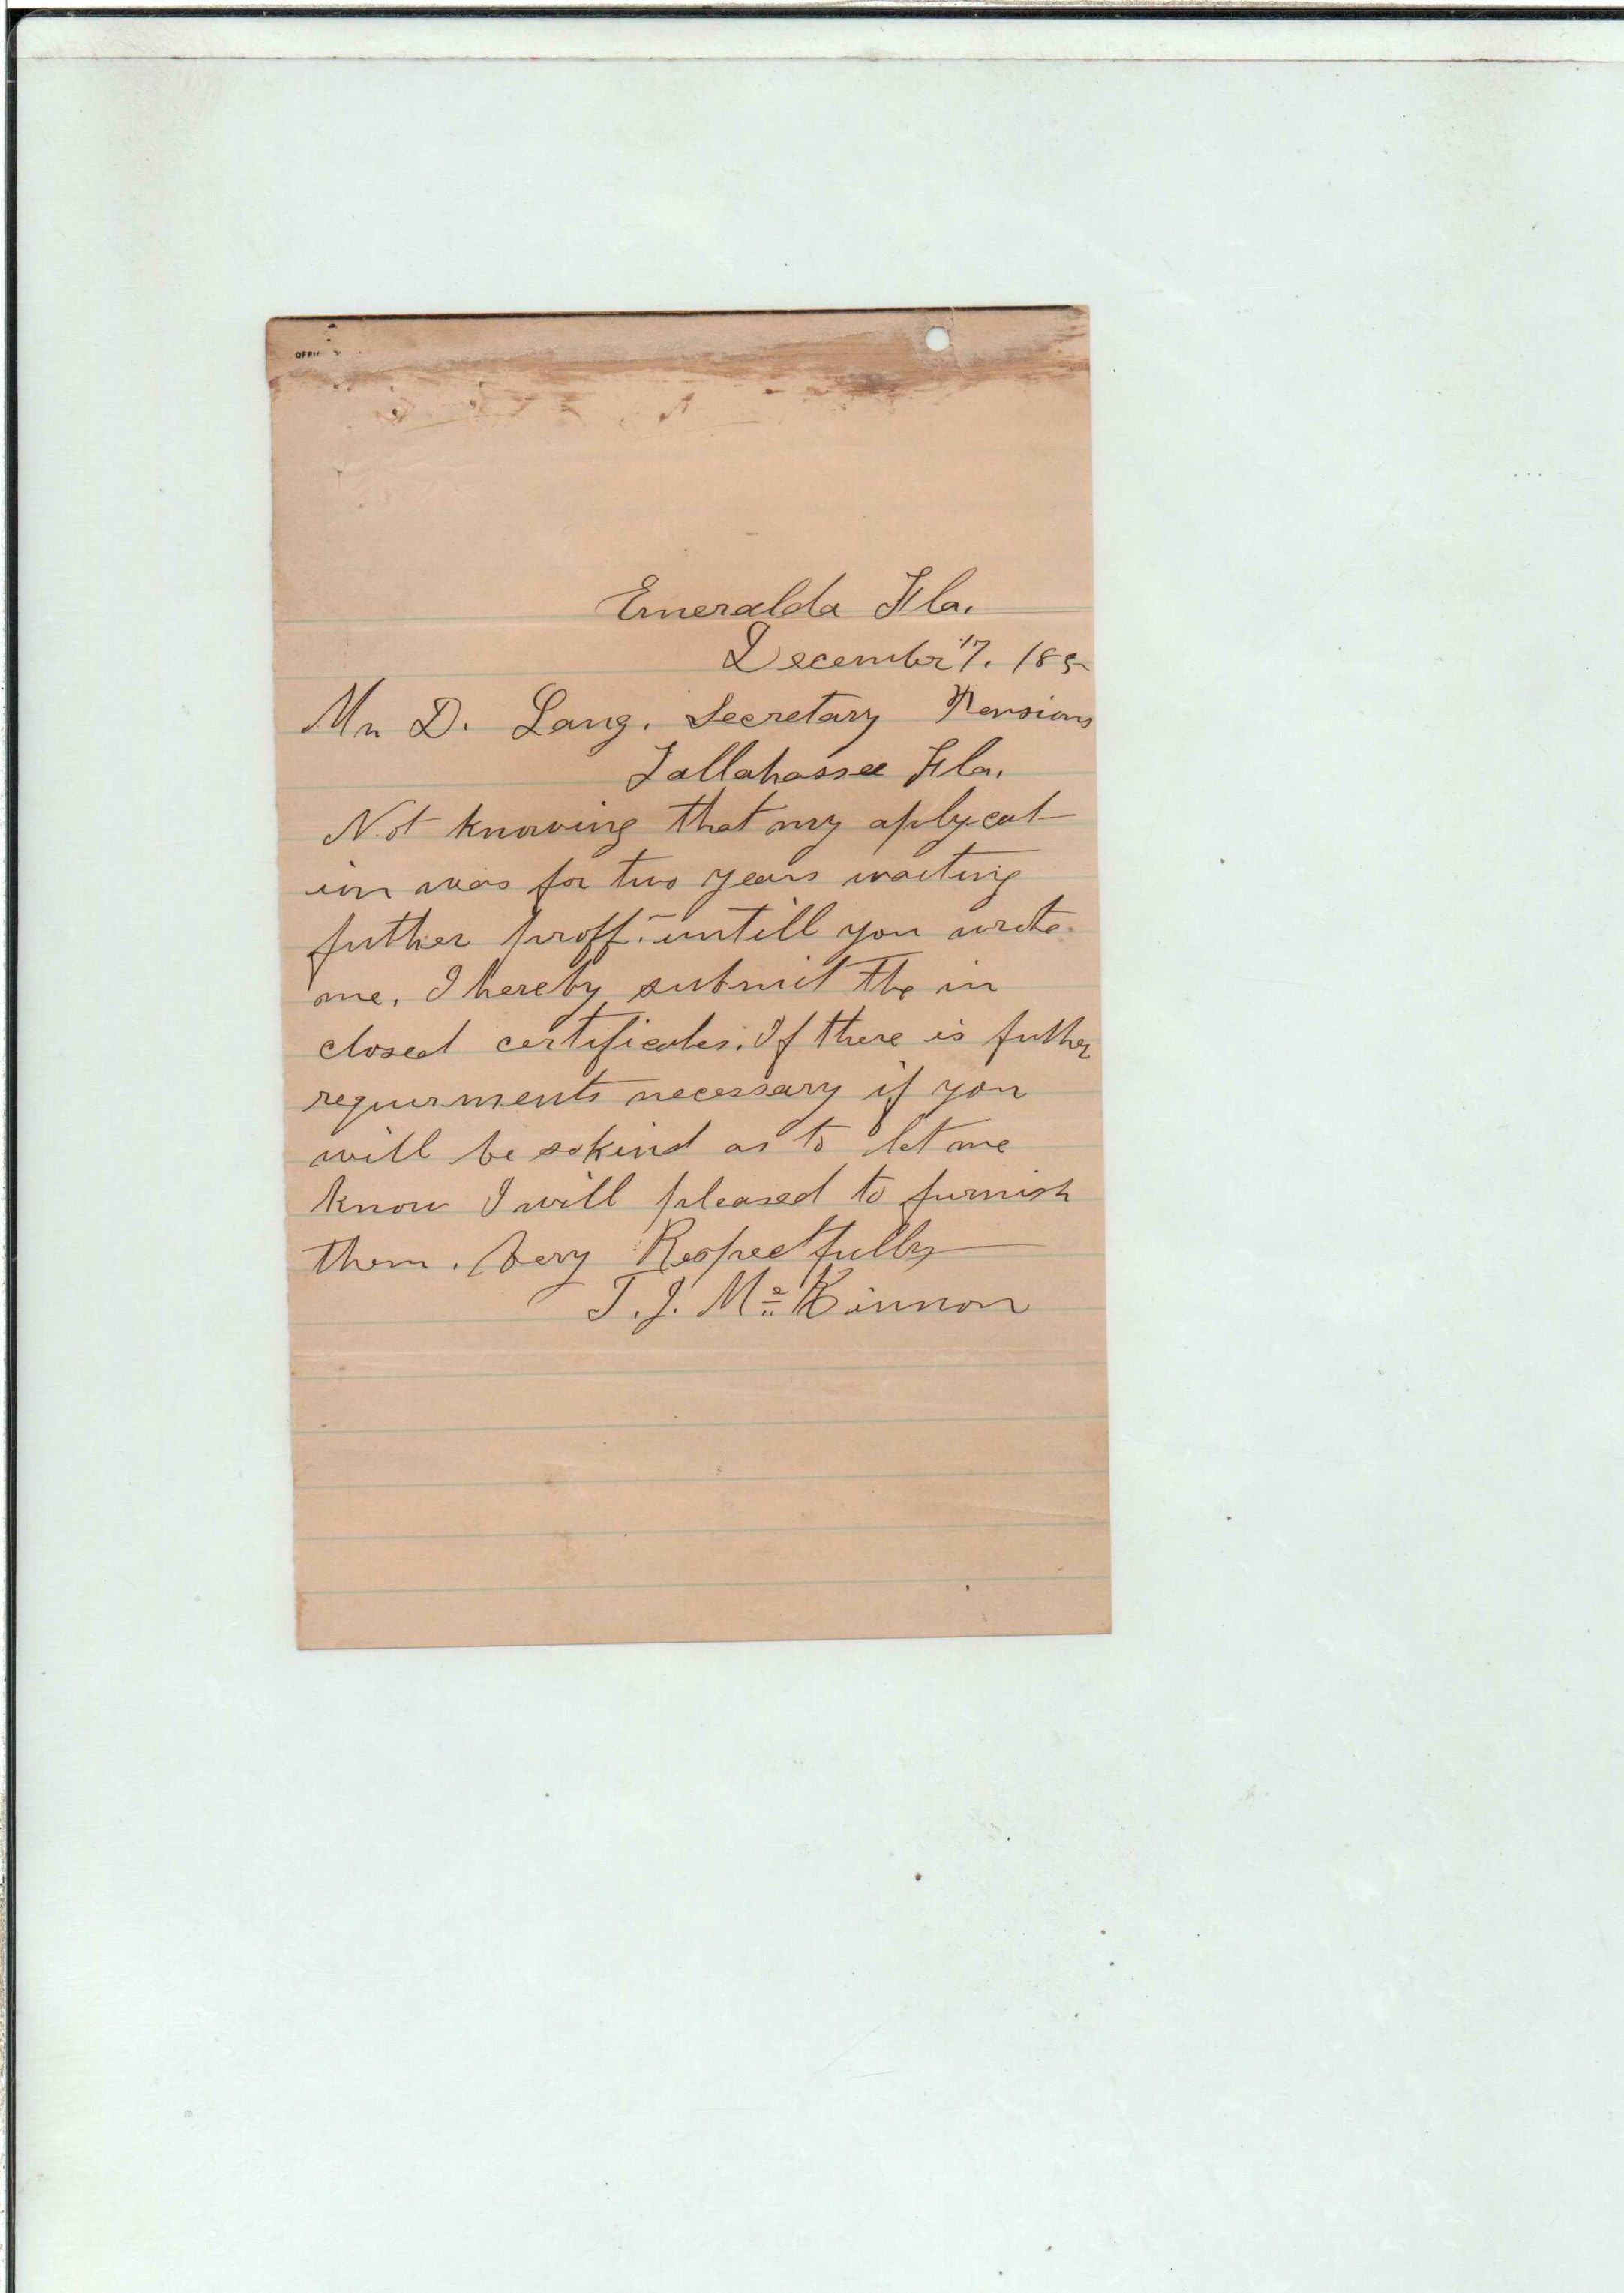 Emeralda Fla.
December 17. 189
Mr D. Lang. Secretary Pensions
Tallahassee Fla.
Not knowing that my aplycat
ion was for two years waiting
futher proff. untill you wrote
me. I hereby submit the in
closed certificates. If there is futher
requirments necessary if you
will be so kind as to let me
know I will pleased to furnish
them. Very Respectfully
T. J. McKinnon